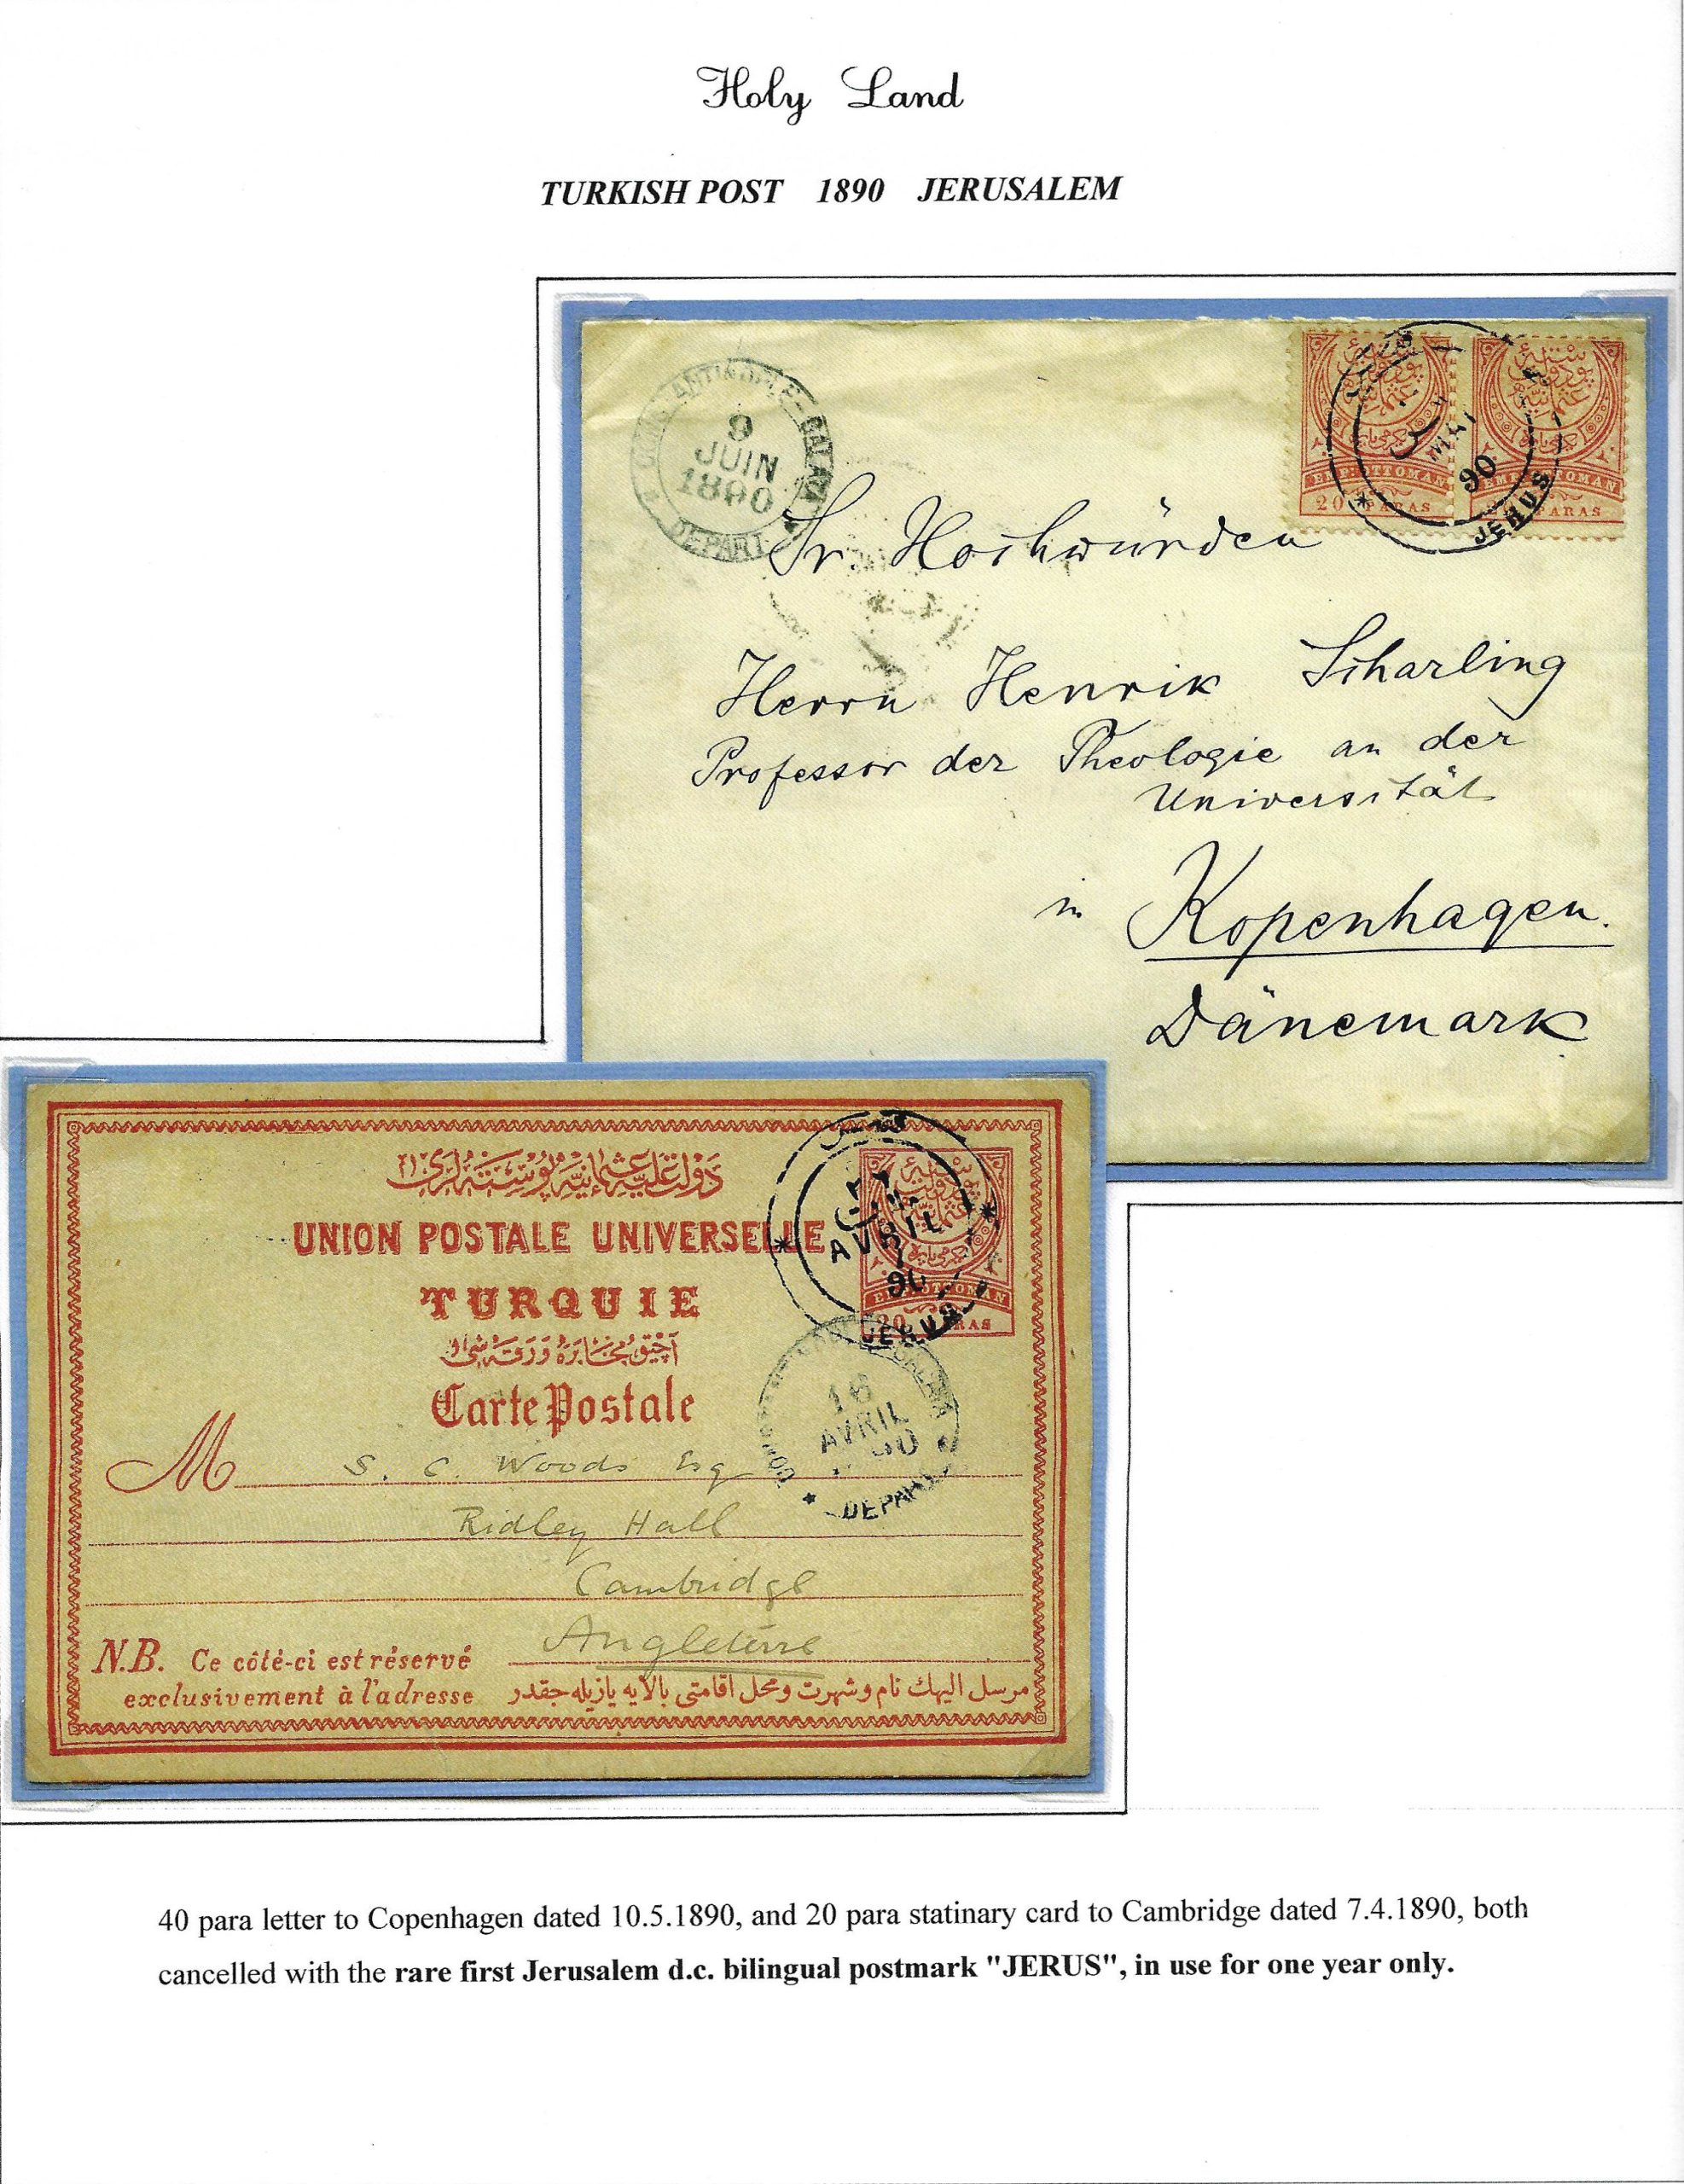 Holy Land
TURKISH POST 1890 JERUSALEM
9
JUIN
1890
DEPART
MAI
90
JERUS
EMP OTTOMAN
20 PARAS
EMP OTTOMAN
PARAS
Sr. Hochwürden
Herrn Henrik Scharling
Professor der Theologie an der
Universität
in Kopenhagen.
Dänemark
دولت علیه عثمانیه پوسته لری
UNION POSTALE UNIVERSELLE
TURQUIE
آچیق مخابره ورقه سی
Carte Postale
AVRIL
90
JERUS
20
16
AVRIL
90
DEPART
M S. C. Woods Esq
Ridley Hall
Cambridge
Angleterre
N.B. Ce côté-ci est réservé
exclusivement à l'adresse
مرسل اليهك نام وشهرت ومحل اقامتى بالايه يازيله جقدر
40 para letter to Copenhagen dated 10.5.1890, and 20 para statinary card to Cambridge dated 7.4.1890, both
cancelled with the rare first Jerusalem d.c. bilingual postmark "JERUS", in use for one year only.